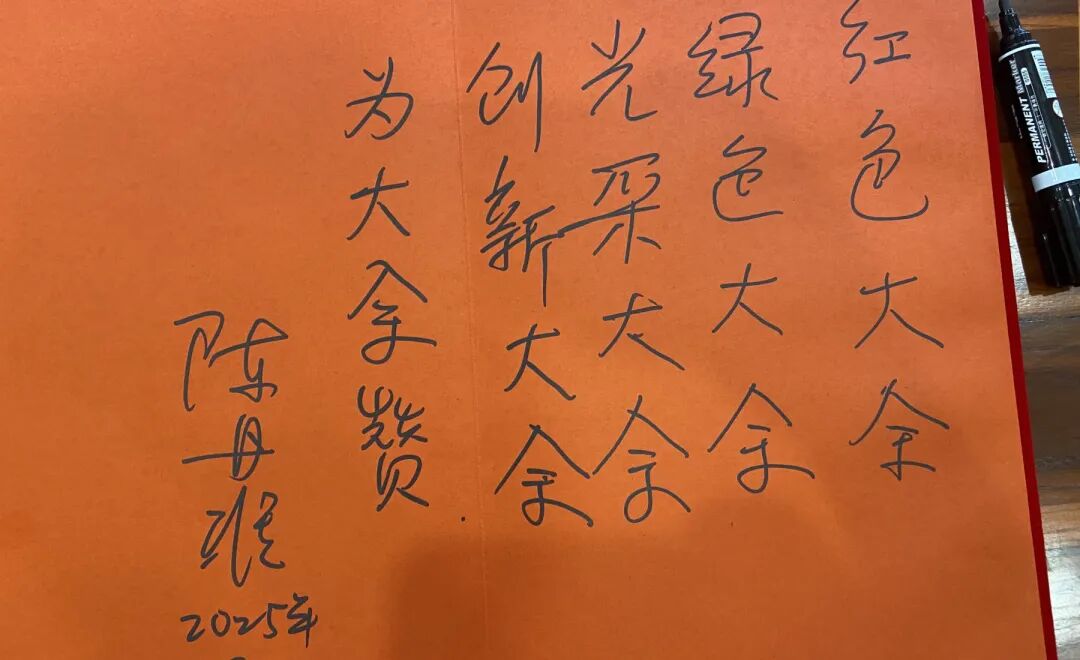 红色大余
绿色大余
光彩大余
创新大余
为大余赞
陈丹
2025年
PERMANENT Marker